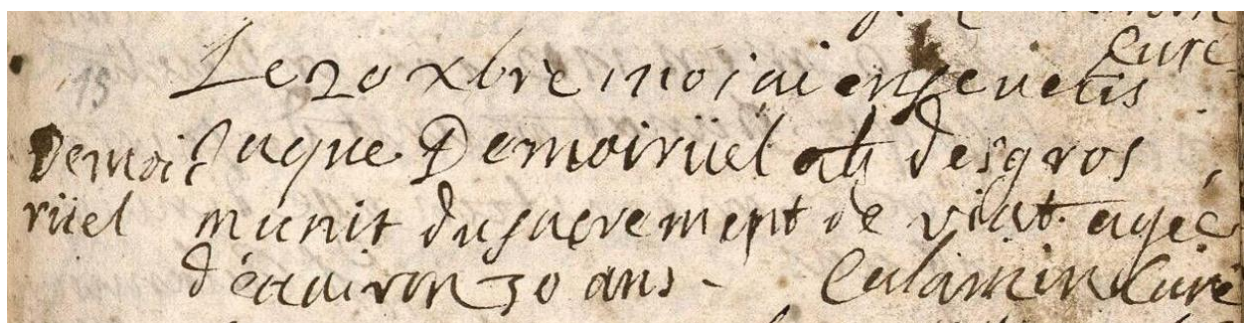 Curé
15
Le 20 xbre 1710 j'ai ensevelis
Demoi Jaque Demoirüel desgros
rüel munit du sacrement de viat. agéé
d'environ 50 ans - Calamin Curé